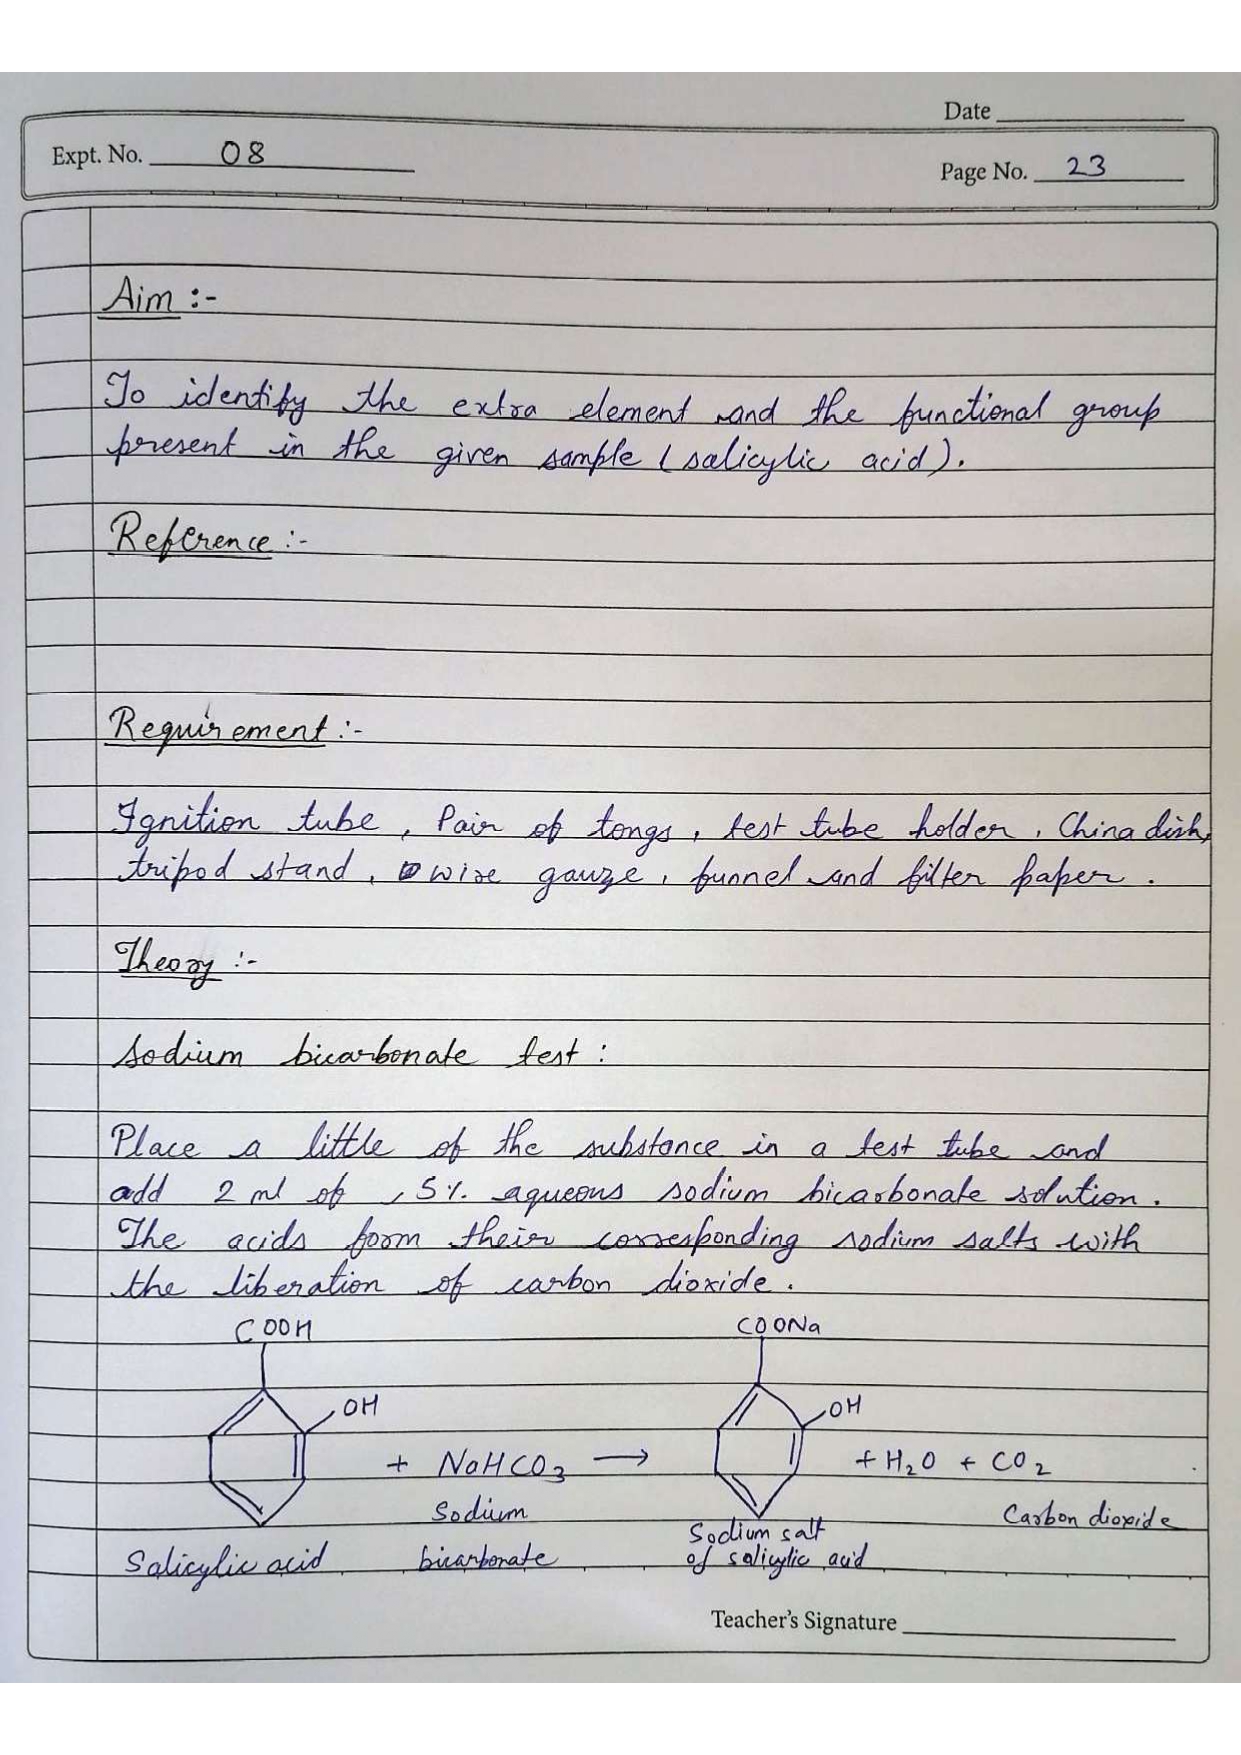 Date
Expt. No. 08
Page No. 23
Aim :-
To identify the extra element and the functional group
present in the given sample (salicylic acid).
Reference :-
Requirement :-
Ignition tube, Pair of tongs, test tube holder, China dish,
tripod stand, wire gauze, funnel and filter paper.
Theory :-
Sodium bicarbonate test :
Place a little of the substance in a test tube and
add 2 ml of 5% aqueous sodium bicarbonate solution.
The acids form their corresponding sodium salts with
the liberation of carbon dioxide.
COOH COONa
OH OH
+ NaHCO3 → + H2O + CO2
Sodium Carbon dioxide
Sodium salt
Salicylic acid bicarbonate of salicylic acid
Teacher's Signature